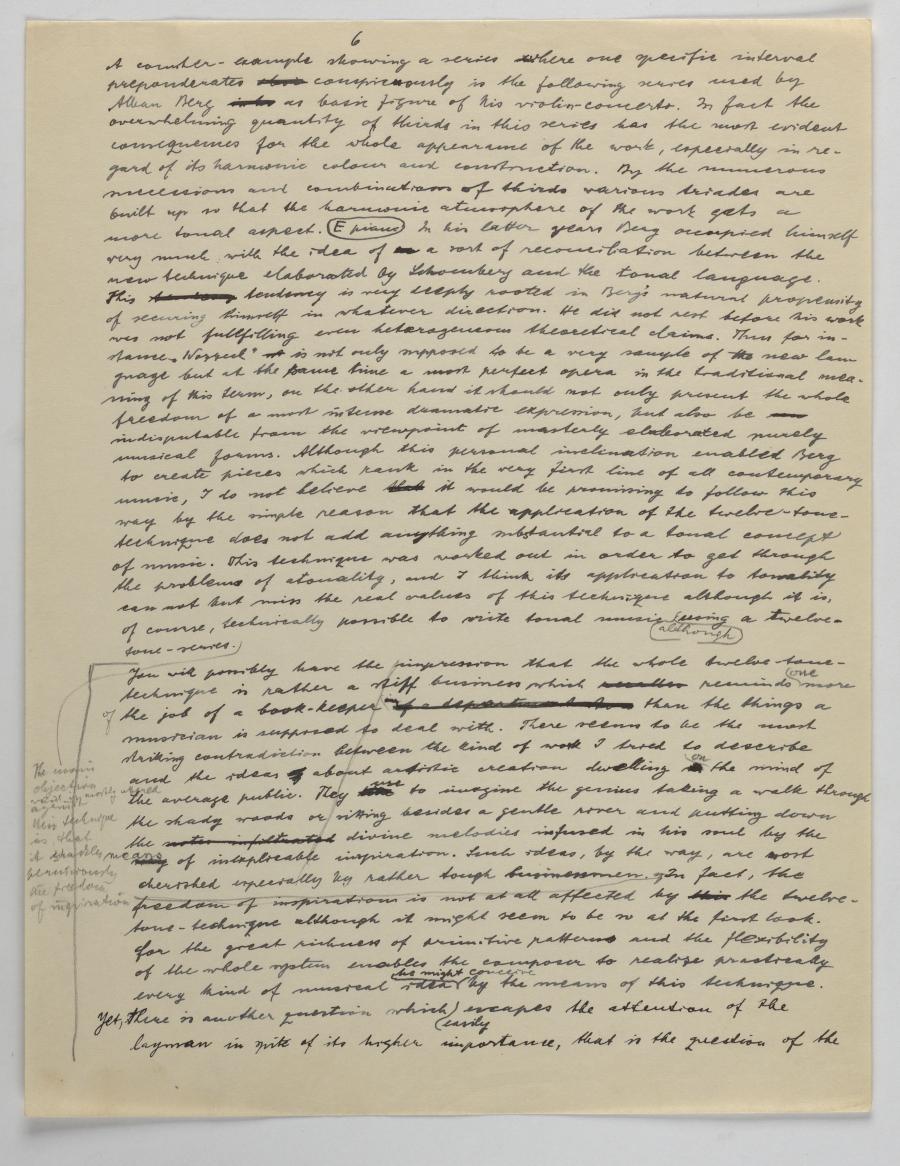 6
A counter-example showing a series where one specific interval
preponderates conspicuously is the following series used by
Alban Berg as basic figure of his violin-concerto. In fact the
overwhelming quantity of thirds in this series has the most evident
consequences for the whole appearance of the work, especially in re-
gard of its harmonic colour and construction. By the numerous
successions and combinations of thirds various triades are
built up so that the harmonic atmosphere of the work gets a
more tonal aspect. (E piano) In his latter years Berg occupied himself
very much with the idea of a sort of reconciliation between the
new technique elaborated by Schoenberg and the tonal language.
This tendency is very deeply rooted in Berg's natural propensity
of securing himself in whatever direction. He did not rest before his work
was not fullfilling even heterogeneous theoretical claims. Thus for in-
stance "Wozzeck" is not only supposed to be a very sample of the new lan
guage but at the same time a most perfect opera in the traditional mea-
ning of this term, on the other hand it should not only present the whole
freedom of a most intense dramatic expression, but also be
indisputable from the viewpoint of masterly elaborated purely
musical forms. Although this personal inclination enabled Berg
to create pieces which rank in the very first line of all contemporary
music, I do not believe it would be promising to follow this
way by the simple reason that the application of the twelve-tone-
technique does not add anything substantial to a tonal concept
of music. This technique was worked out in order to get through
the problems of atonality, and I think its application to tonality
can not but miss the real values of this technique although it is,
of course, technically possible to write tonal music using a twelve-
(although)
tone-series.
You will possibly have the impression that the whole twelve-tone-
one
technique is rather a stiff business which reminds more
of the job of a book-keeper than the things a
musician is supposed to deal with. There seems to be the most
striking contradiction between the kind of work I tried to describe
on
and the ideas about artistic creation dwelling the mind of
the average public. They use to imagine the genius taking a walk through
the shady woods or sitting besides a gentle river and putting down
the divine melodies infused in his soul by the
means of inexplicable inspiration. Such ideas, by the way, are most
cherished especially by rather tough businessmen. In fact, the
freedom of inspirations is not at all affected by the twelve-
tone-technique although it might seem to be so at the first look.
For the great richness of primitive patterns and the flexibility
of the whole system enables the composer to realize practically
he might conceive
every kind of musical idea by the means of this technique.
Yet, there is another question which escapes the attention of the
(easily
layman in spite of its higher importance, that is the question of the
The main
objection
mostly
against
this technique
is that
it shackles
perniciously
the freedom
of inspiration